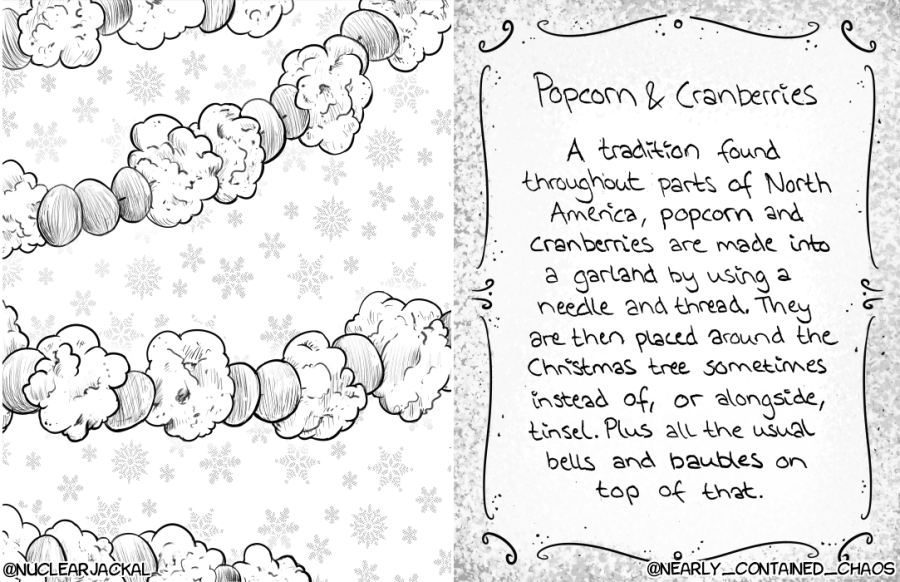 Popcorn & Cranberries
A tradition found
throughout parts of North
America, popcorn and
cranberries are made into
a garland by using a
needle and thread. They
are then placed around the
Christmas tree sometimes
instead of, or alongside,
tinsel. Plus all the usual
bells and baubles on
top of that.
@NUCLEARJACKAL_
@NEARLY_CONTAINED_CHAOS